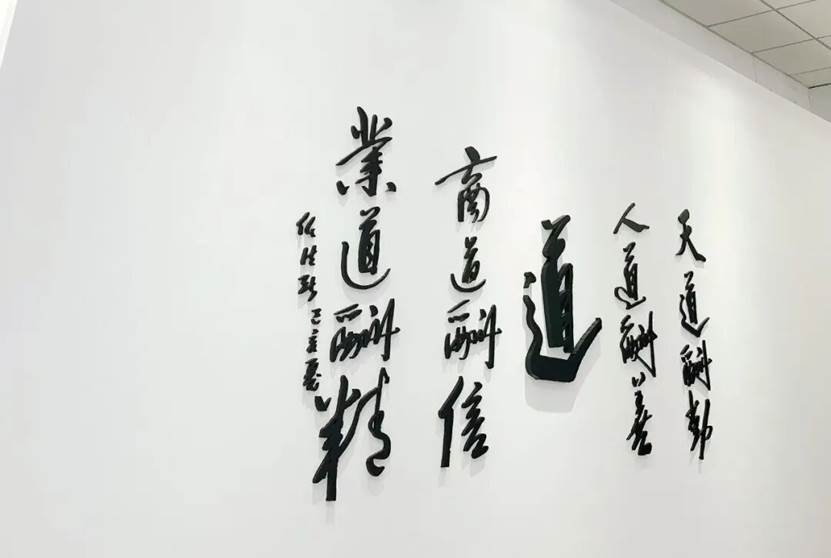 天道酬勤
人道酬善
道
商道酬信
業道酬精
己亥夏